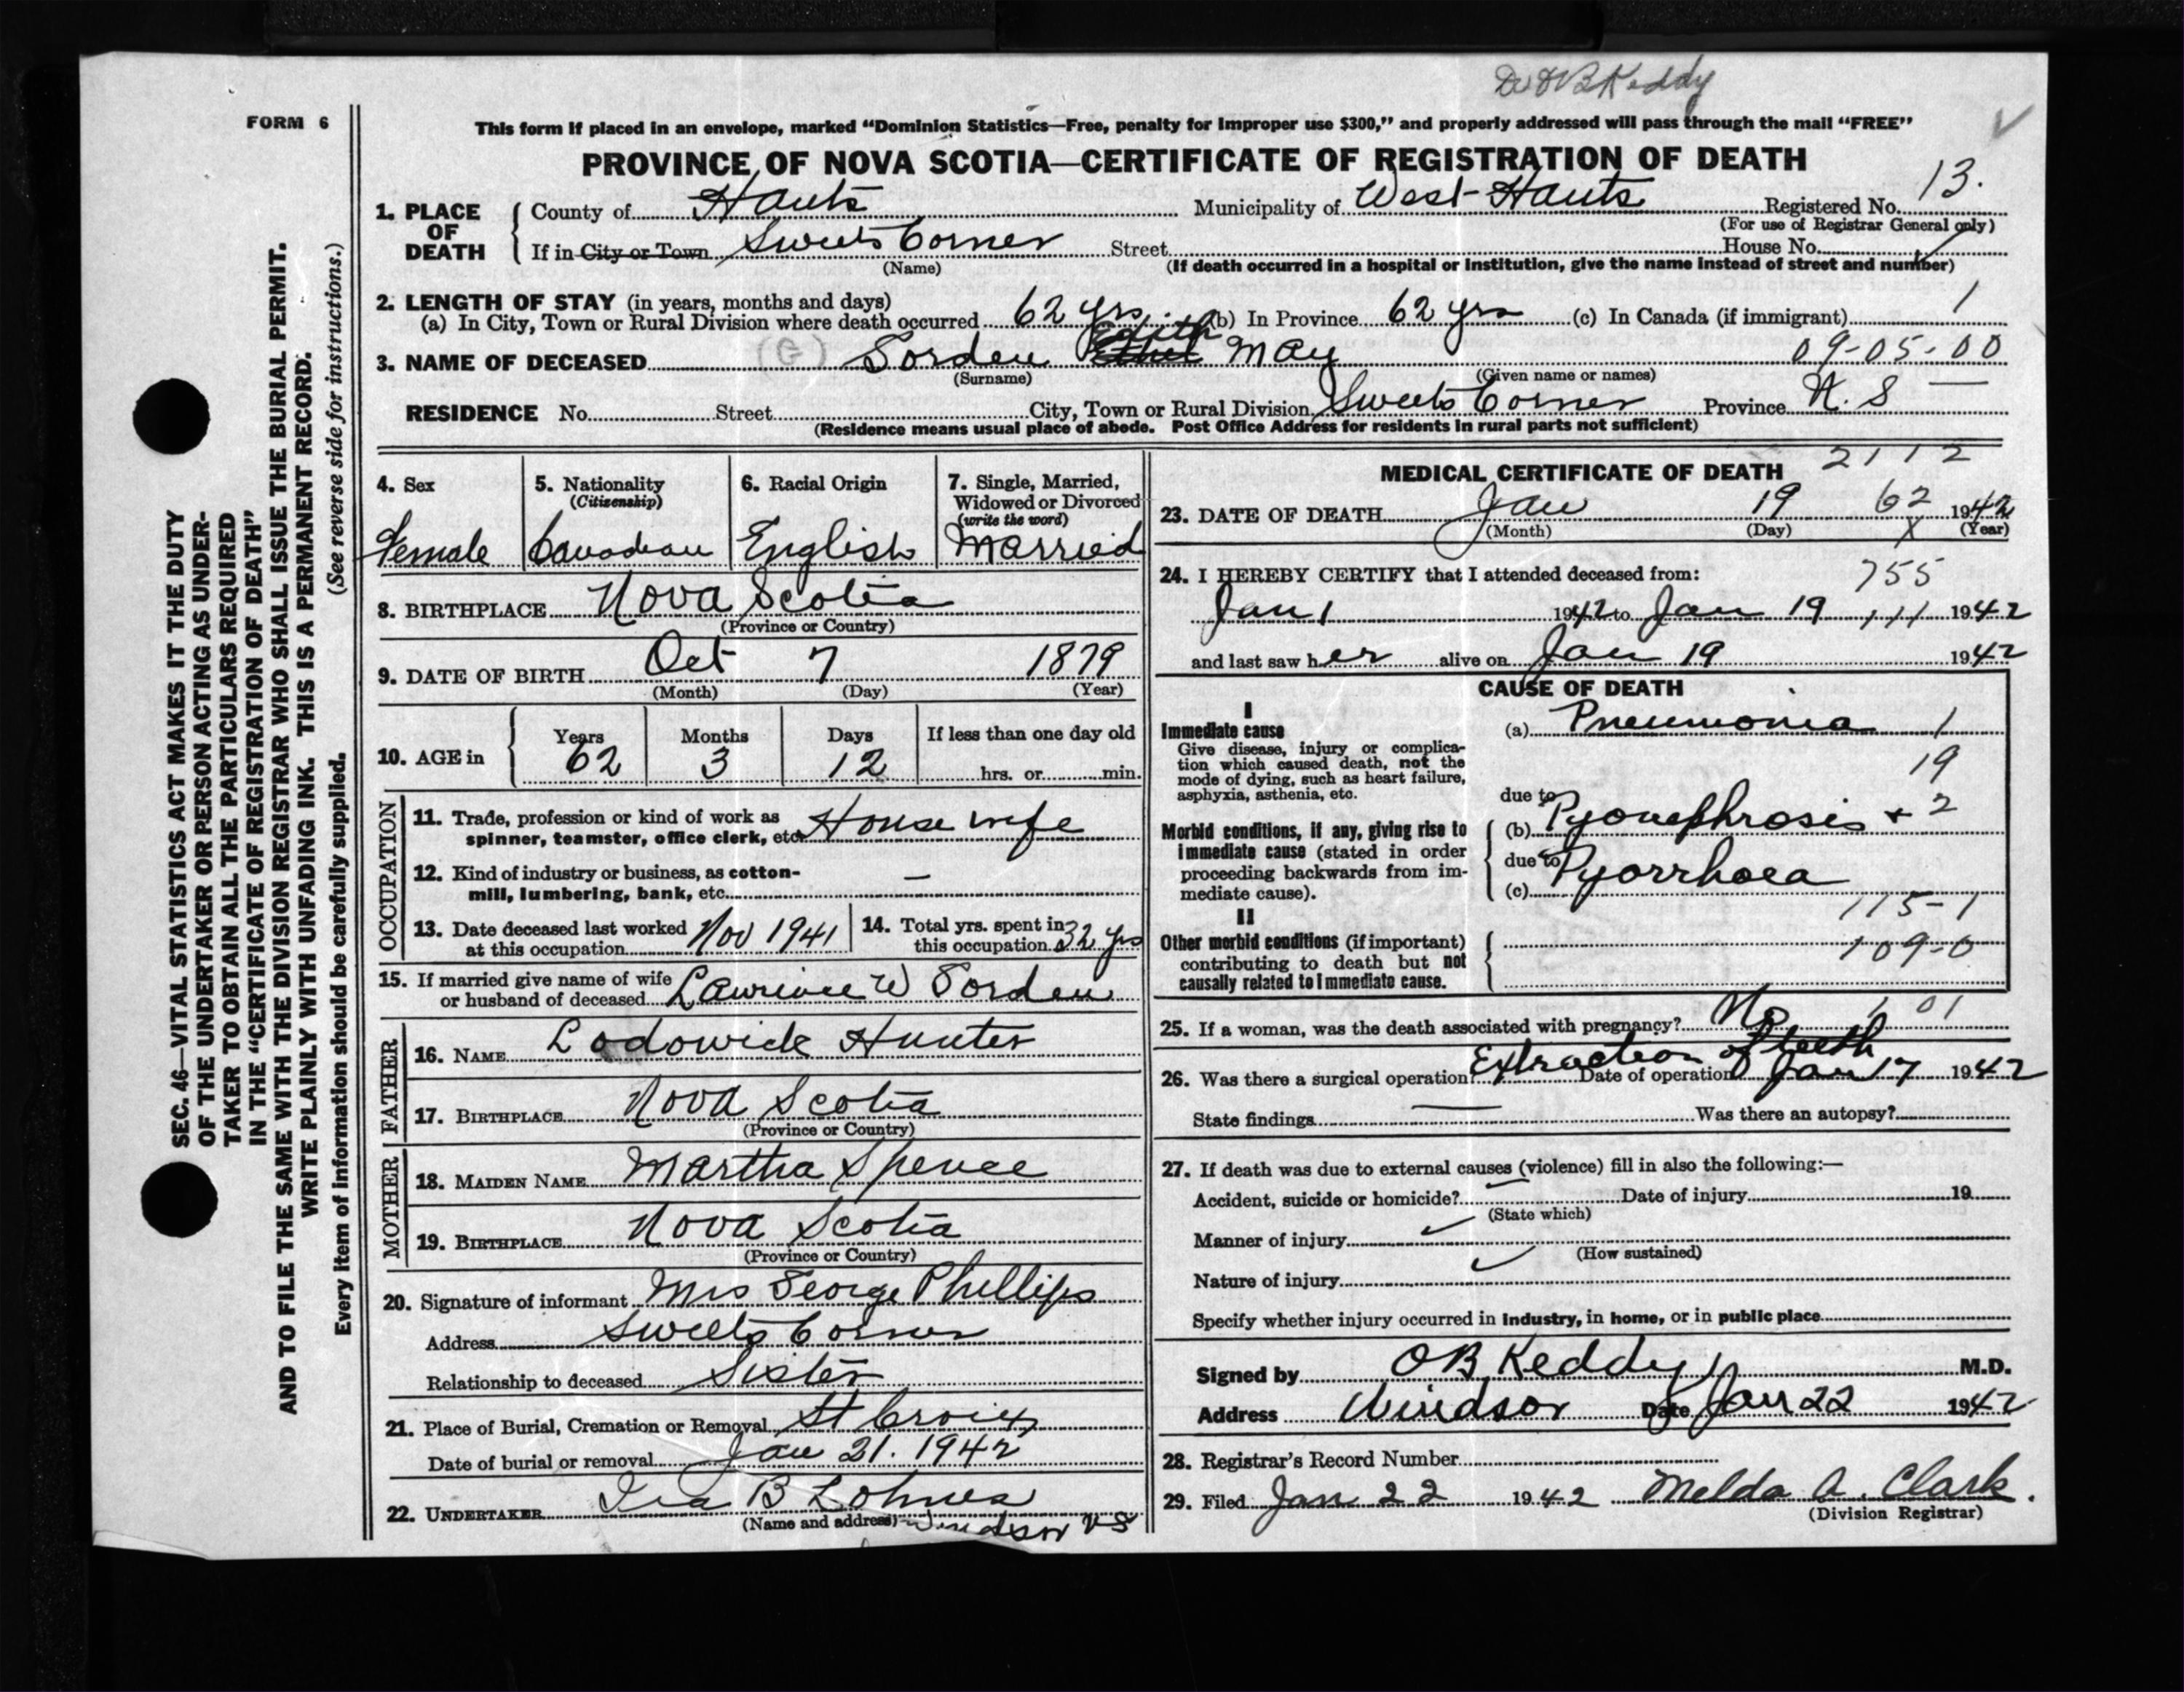 Dr O B Keddy
FORM 6
This form if placed in an envelope, marked "Dominion Statistics—Free, penalty for improper use $300," and properly addressed will pass through the mail "FREE"
PROVINCE OF NOVA SCOTIA—CERTIFICATE OF REGISTRATION OF DEATH
13.
1. PLACE OF DEATH County of Hants Municipality of West Hants Registered No.
(For use of Registrar General only)
If in City or Town Sweets Corner Street House No.
(Name) (If death occurred in a hospital or institution, give the name instead of street and number)
2. LENGTH OF STAY (in years, months and days)
(a) In City, Town or Rural Division where death occurred 62 yrs. (b) In Province 62 yrs (c) In Canada (if immigrant) 1
Edith
3. NAME OF DECEASED (G) Sorden Ethel May 09-05-00
(Surname) (Given name or names)
RESIDENCE No. Street City, Town or Rural Division Sweets Corner Province N. S —
(Residence means usual place of abode. Post Office Address for residents in rural parts not sufficient)
4. Sex Female
5. Nationality (Citizenship) Canadian
6. Racial Origin English
7. Single, Married, Widowed or Divorced (write the word) Married
8. BIRTHPLACE Nova Scotia
(Province or Country)
9. DATE OF BIRTH Oct 7 1879
(Month) (Day) (Year)
10. AGE in Years 62 Months 3 Days 12 If less than one day old
hrs. or min.
OCCUPATION
11. Trade, profession or kind of work as
spinner, teamster, office clerk, etc. House wife
12. Kind of industry or business, as cotton-
mill, lumbering, bank, etc. —
13. Date deceased last worked
at this occupation Nov 1941
14. Total yrs. spent in
this occupation 32 yrs
15. If married give name of wife
or husband of deceased Laurince W Sorden
FATHER
16. NAME Lodowick Hunter
17. BIRTHPLACE Nova Scotia
(Province or Country)
MOTHER
18. MAIDEN NAME Martha Spence
19. BIRTHPLACE Nova Scotia
(Province or Country)
20. Signature of informant Mrs George Phillips
Address Sweets Corner
Relationship to deceased Sister
21. Place of Burial, Cremation or Removal St Croix
Date of burial or removal Jan 21. 1942
22. UNDERTAKER Ira B Lohnes
(Name and address) Windsor NS
MEDICAL CERTIFICATE OF DEATH 2112
23. DATE OF DEATH Jan 19 62 1942
(Month) (Day) X (Year)
24. I HEREBY CERTIFY that I attended deceased from: 755
Jan 1 1942 to Jan 19 111 1942
and last saw her alive on Jan 19 1942
CAUSE OF DEATH
I
Immediate cause (a) Pneumonia 1
Give disease, injury or complica-
tion which caused death, not the
mode of dying, such as heart failure,
asphyxia, asthenia, etc.
19
due to
Morbid conditions, if any, giving rise to
immediate cause (stated in order
proceeding backwards from im-
mediate cause).
(b) Pyonephrosis + 2
due to
(c) Pyorrhoea
115-1
II
Other morbid conditions (if important)
contributing to death but not
causally related to immediate cause.
109-0
25. If a woman, was the death associated with pregnancy? No 1 01
26. Was there a surgical operation? Extraction of teeth Date of operation Jan 17 1942
State findings — Was there an autopsy?
27. If death was due to external causes (violence) fill in also the following:—
Accident, suicide or homicide? Date of injury 19
(State which)
Manner of injury
(How sustained)
Nature of injury
Specify whether injury occurred in industry, in home, or in public place
Signed by O B Keddy M.D.
Address Windsor Date Jan 22 1942
28. Registrar's Record Number
29. Filed Jan 22 1942 Melda A. Clark.
(Division Registrar)
SEC. 46—VITAL STATISTICS ACT MAKES IT THE DUTY
OF THE UNDERTAKER OR PERSON ACTING AS UNDER-
TAKER TO OBTAIN ALL THE PARTICULARS REQUIRED
IN THE "CERTIFICATE OF REGISTRATION OF DEATH"
AND TO FILE THE SAME WITH THE DIVISION REGISTRAR WHO SHALL ISSUE THE BURIAL PERMIT.
WRITE PLAINLY WITH UNFADING INK. THIS IS A PERMANENT RECORD.
(See reverse side for instructions.)
Every item of information should be carefully supplied.